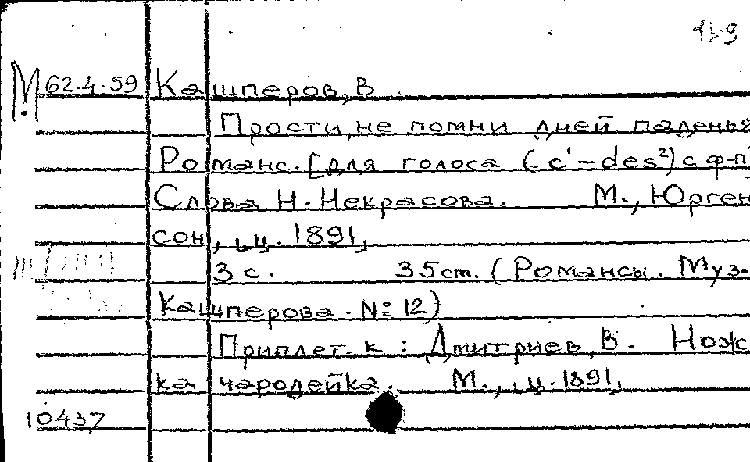 139
М 62.4.59 Кашперов, В.
Прости, не помни дней паденья
Романс. [для голоса (c¹-des²) с ф-п]
Слова Н. Некрасова. М., Юрген
сон, ц. 1891,
3 с. 35 cm. (Романсы. Муз.
Кашперова. № 12)
Приплет. к: Дмитриев, В. Нож
ка чародейка. М., ц. 1891,
10437